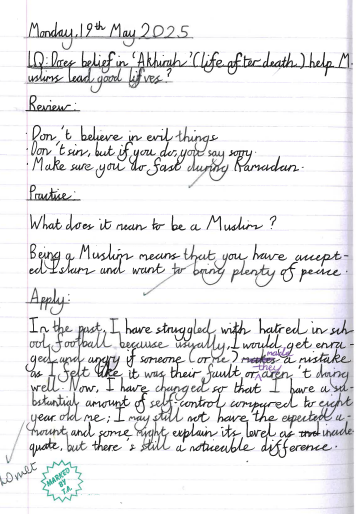 Monday, 19th May 2025
LQ: Does belief in 'Akhirah' (life after death) help M-
uslims lead good lifves?
Review:
· Don't believe in evil things
· Don't sin, but if you do, you say sorry.
· Make sure you do fast during Ramadan.
Practise:
What does it mean to be a Muslim?
Being a Muslim means that you have accept-
ed Islam and want to bring plenty of peace.
Apply:
In the past, I have struggled with hatred in sch-
ool football because usually, I would get enra-
ged and angry if someone (or me) makes made a mistake
as I felt like it was their fault or they aren't doing
well. Now, I have changed so that I have a su-
bstantial amount of self-control compared to eight
year old me; I may still not have the expected a-
mount and some might explain its level as inade-
quate, but there is still a noticeable difference.
LO met
MARKED
BY T.A.